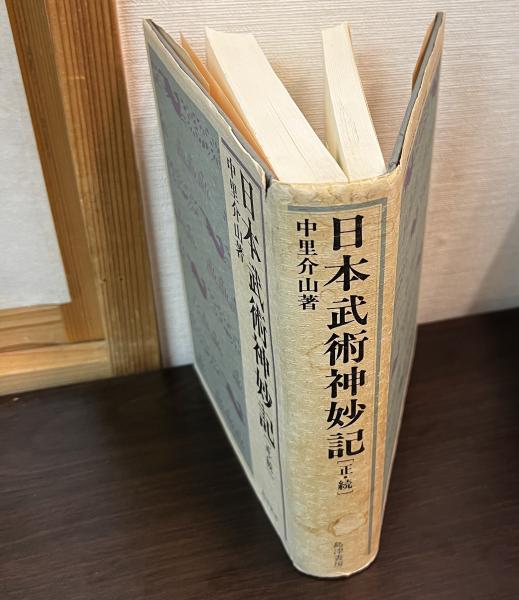 日本武術神妙記
[正・続]
中里介山著
島津書房
日本武術神妙記
中里介山著